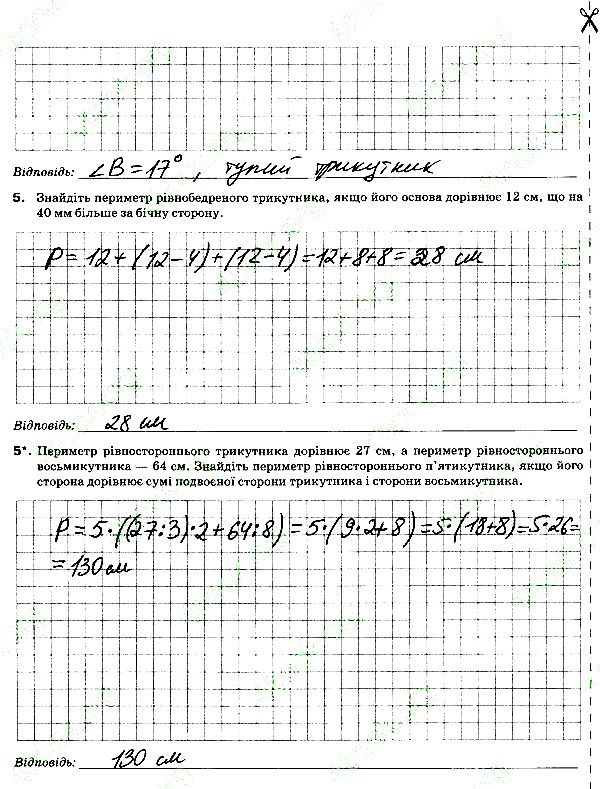 Відповідь: ∠B = 17°, тупий трикутник
5. Знайдіть периметр рівнобедреного трикутника, якщо його основа дорівнює 12 см, що на
40 мм більше за бічну сторону.
P = 12 + (12 – 4) + (12 – 4) = 12 + 8 + 8 = 28 см
Відповідь: 28 см
5*. Периметр рівностороннього трикутника дорівнює 27 см, а периметр рівностороннього
восьмикутника — 64 см. Знайдіть периметр рівностороннього п'ятикутника, якщо його
сторона дорівнює сумі подвоєної сторони трикутника і сторони восьмикутника.
P = 5·((27:3)·2 + 64:8) = 5·(9·2+8) = 5·(18+8) = 5·26 =
= 130 см
Відповідь: 130 см